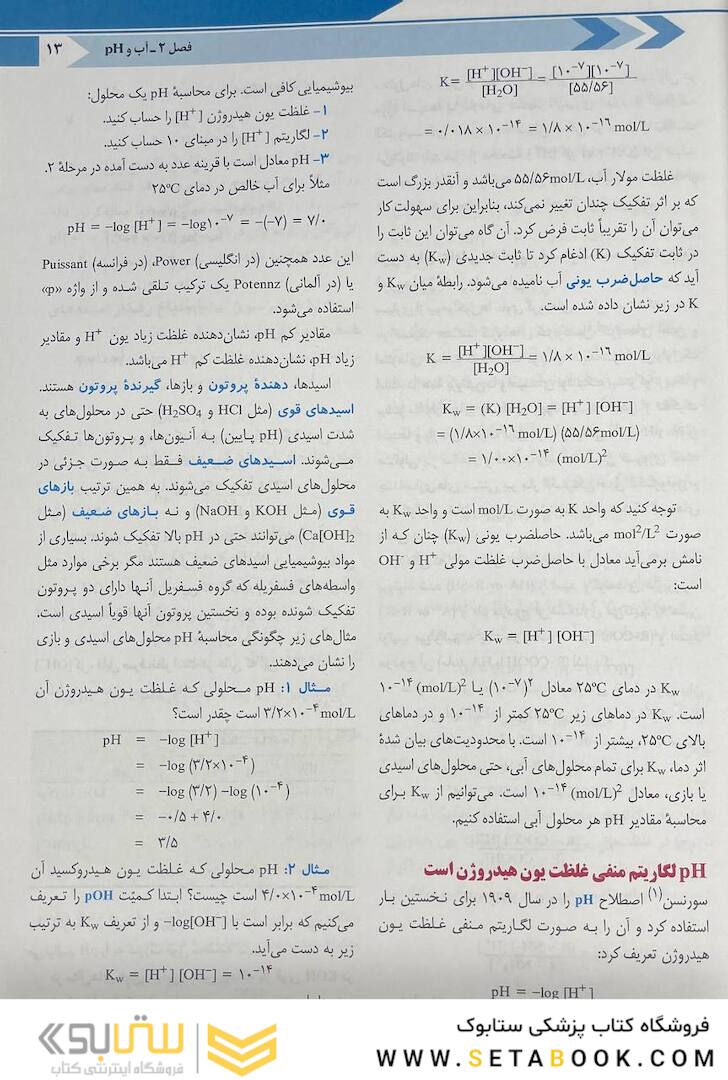 فصل ۲ ـ آب و pH ۱۳
K= [H⁺][OH⁻] / [H₂O] = [۱۰⁻⁷][۱۰⁻⁷] / [۵۵/۵۶]
= ۰/۰۱۸ × ۱۰⁻¹⁴ = ۱/۸ × ۱۰⁻¹⁶ mol/L
غلظت مولار آب، ۵۵/۵۶mol/L می‌باشد و آنقدر بزرگ است
که بر اثر تفکیک چندان تغییر نمی‌کند، بنابراین برای سهولت کار
می‌توان آن را تقریباً ثابت فرض کرد. آن گاه می‌توان این ثابت را
در ثابت تفکیک (K) ادغام کرد تا ثابت جدیدی (Kw) به دست
آید که حاصل‌ضرب یونی آب نامیده می‌شود. رابطهٔ میان Kw و
K در زیر نشان داده شده است.
K = [H⁺][OH⁻] / [H₂O] = ۱/۸ × ۱۰⁻¹⁶ mol/L
Kw = (K) [H₂O] = [H⁺] [OH⁻]
= (۱/۸×۱۰⁻¹⁶ mol/L) (۵۵/۵۶mol/L)
= ۱/۰۰×۱۰⁻¹⁴ (mol/L)²
توجه کنید که واحد K به صورت mol/L است و واحد Kw به
صورت mol²/L² می‌باشد. حاصلضرب یونی (Kw) چنان که از
نامش برمی‌آید معادل با حاصل‌ضرب غلظت مولی H⁺ و OH⁻
است:
Kw = [H⁺] [OH⁻]
Kw در دمای ۲۵°C معادل ²(۱۰⁻⁷) یا ۱۰⁻¹⁴ (mol/L)²
است. Kw در دماهای زیر ۲۵°C کمتر از ۱۰⁻¹⁴ و در دماهای
بالای ۲۵°C، بیشتر از ۱۰⁻¹⁴ است. با محدودیت‌های بیان شدهٔ
اثر دما، Kw برای تمام محلول‌های آبی، حتی محلول‌های اسیدی
یا بازی، معادل ۱۰⁻¹⁴ (mol/L)² است. می‌توانیم از Kw برای
محاسبهٔ مقادیر pH هر محلول آبی استفاده کنیم.
pH لگاریتم منفی غلظت یون هیدروژن است
سورنسن(۱) اصطلاح pH را در سال ۱۹۰۹ برای نخستین بار
استفاده کرد و آن را به صورت لگاریتم منفی غلظت یون
هیدروژن تعریف کرد:
pH = −log [H⁺]
بیوشیمیایی کافی است. برای محاسبهٔ pH یک محلول:
۱- غلظت یون هیدروژن [H⁺] را حساب کنید.
۲- لگاریتم [H⁺] را در مبنای ۱۰ حساب کنید.
۳- pH معادل است با قرینه عدد به دست آمده در مرحلهٔ ۲.
مثلاً برای آب خالص در دمای ۲۵°C
pH = −log [H⁺] = −log۱۰⁻⁷ = −(−۷) = ۷/۰
این عدد همچنین (در انگلیسی) Power، (در فرانسه) Puissant
یا (در آلمانی) Potennz یک ترکیب تلقی شده و از واژه «p»
استفاده می‌شود.
مقادیر کم pH، نشان‌دهنده غلظت زیاد یون H⁺ و مقادیر
زیاد pH، نشان‌دهنده غلظت کم H⁺ می‌باشد.
اسیدها، دهندهٔ پروتون و بازها، گیرندهٔ پروتون هستند.
اسیدهای قوی (مثل HCl و H₂SO₄) حتی در محلول‌های به
شدت اسیدی (pH پایین) به آنیون‌ها، و پروتون‌ها تفکیک
می‌شوند. اسیدهای ضعیف فقط به صورت جزئی در
محلول‌های اسیدی تفکیک می‌شوند. به همین ترتیب بازهای
قوی (مثل KOH و NaOH) و نه بازهای ضعیف (مثل
Ca[OH]₂) می‌توانند حتی در pH بالا تفکیک شوند. بسیاری از
مواد بیوشیمیایی اسیدهای ضعیف هستند مگر برخی موارد مثل
واسطه‌های فسفریله که گروه فسفریل آنها دارای دو پروتون
تفکیک شونده بوده و نخستین پروتون آنها قویاً اسیدی است.
مثال‌های زیر چگونگی محاسبهٔ pH محلول‌های اسیدی و بازی
را نشان می‌دهند.
مثال ۱: pH محلولی که غلظت یون هیدروژن آن
۳/۲×۱۰⁻⁴mol/L است چقدر است؟
pH = −log [H⁺]
= −log (۳/۲×۱۰⁻⁴)
= −log (۳/۲) −log (۱۰⁻⁴)
= −۰/۵ + ۴/۰
= ۳/۵
مثال ۲: pH محلولی که غلظت یون هیدروکسید آن
۴/۰×۱۰⁻⁴mol/L است چیست؟ ابتدا کمیّت pOH را تعریف
می‌کنیم که برابر است با −log[OH⁻] و از تعریف Kw به ترتیب
زیر به دست می‌آید.
Kw = [H⁺] [OH⁻] = ۱۰⁻¹⁴
فروشگاه کتاب پزشکی ستابوک
WWW.SETABOOK.COM
ستابوک
فروشگاه اینترنتی کتاب